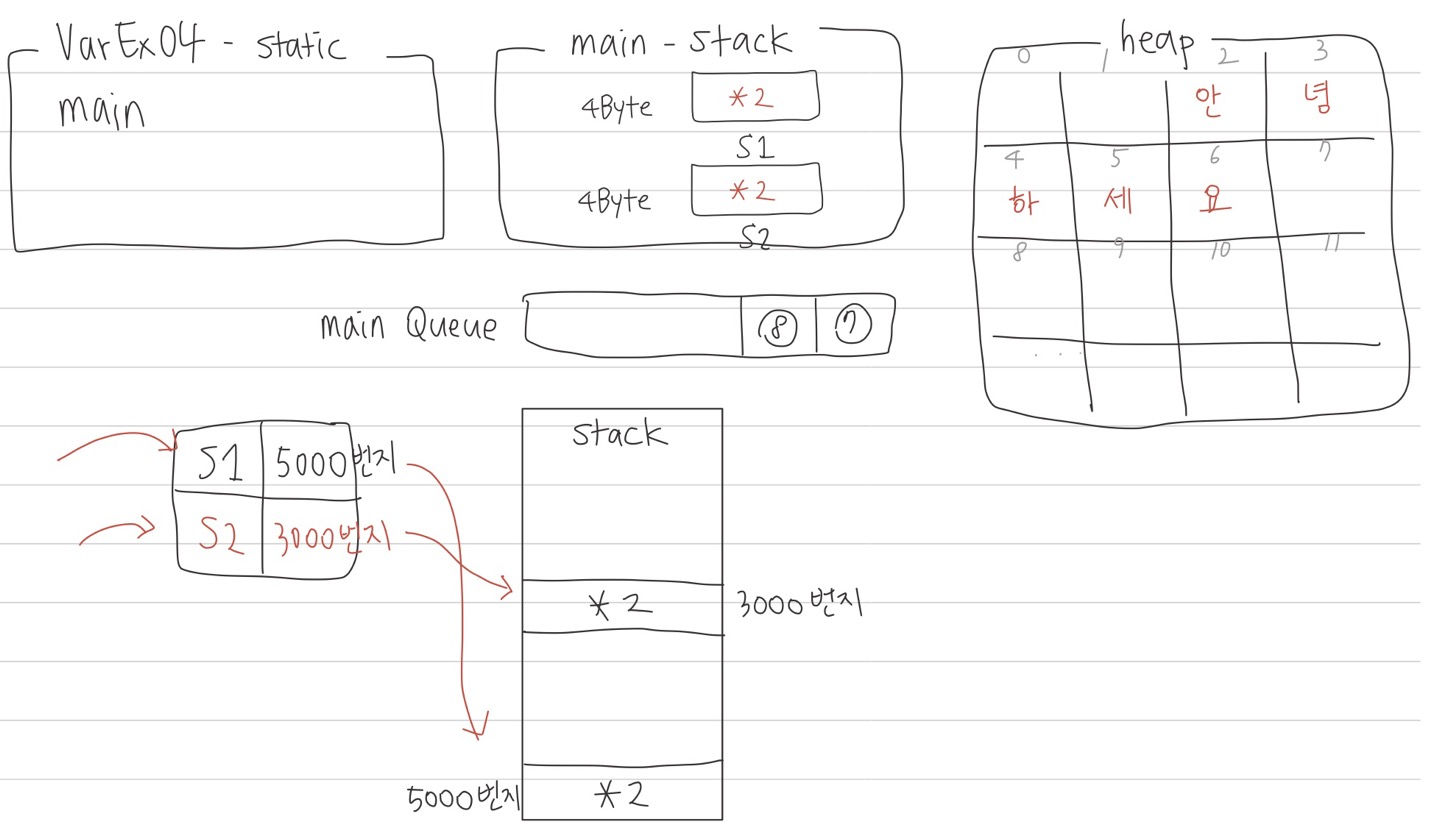 VarEx04 - static
main
main - stack
4Byte *2
S1
4Byte *2
S2
heap
0 1 2 3
안 녕
4 5 6 7
하 세 요
8 9 10 11
...
main Queue ⑧ ⑦
S1 5000번지
S2 3000번지
stack
*2 3000번지
5000번지 *2